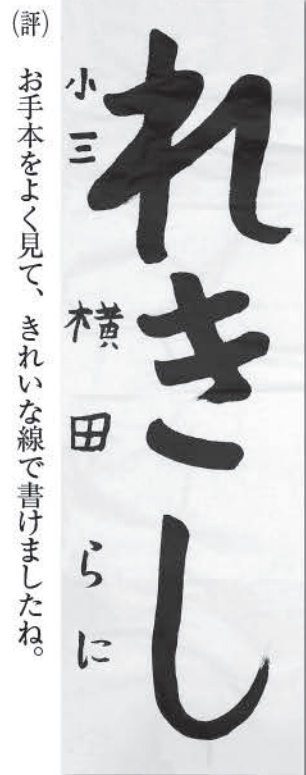 れきし
小三 横田らに
(評) お手本をよく見て、きれいな線で書けましたね。